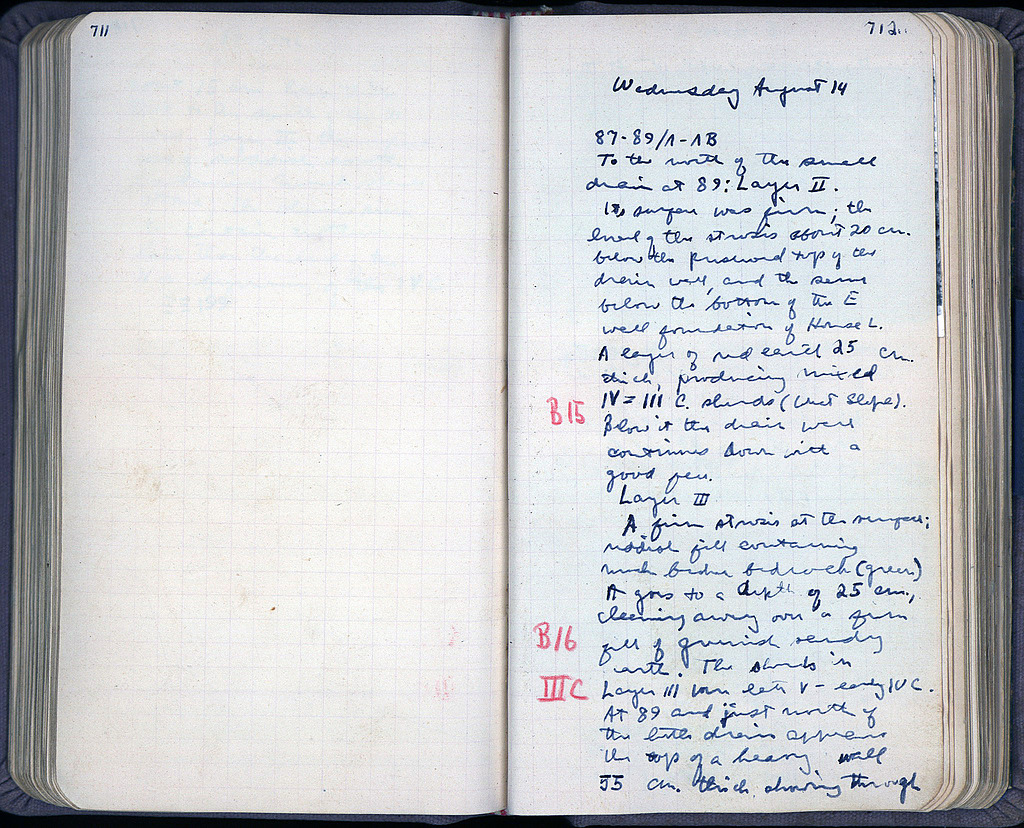 711
712
Wednesday August 14
87-89/Λ-ΛB
To the north of the small
drain at 89: Layer II.
Its surface was firm; the
level of the strosis about 20 cm.
below the preserved top of the
drain wall, and the same
below the bottom of the E
wall foundation of House L.
A layer of red earth 25 cm.
thick, producing mixed
B15
IV = III C. sherds (West Slope).
Below it the drain wall
continues down with a
good face.
Layer III
A firm strosis at the surface;
reddish fill containing
much broken bedrock (green)
It goes to a depth of 25 cm.,
cleaning away over a firm
B16
fill of greenish sandy
earth. The sherds in
III C
Layer III were late V - early IV C.
At 89 and just north of
the little drain appears
the top of a heavy wall
55 cm. thick, showing through